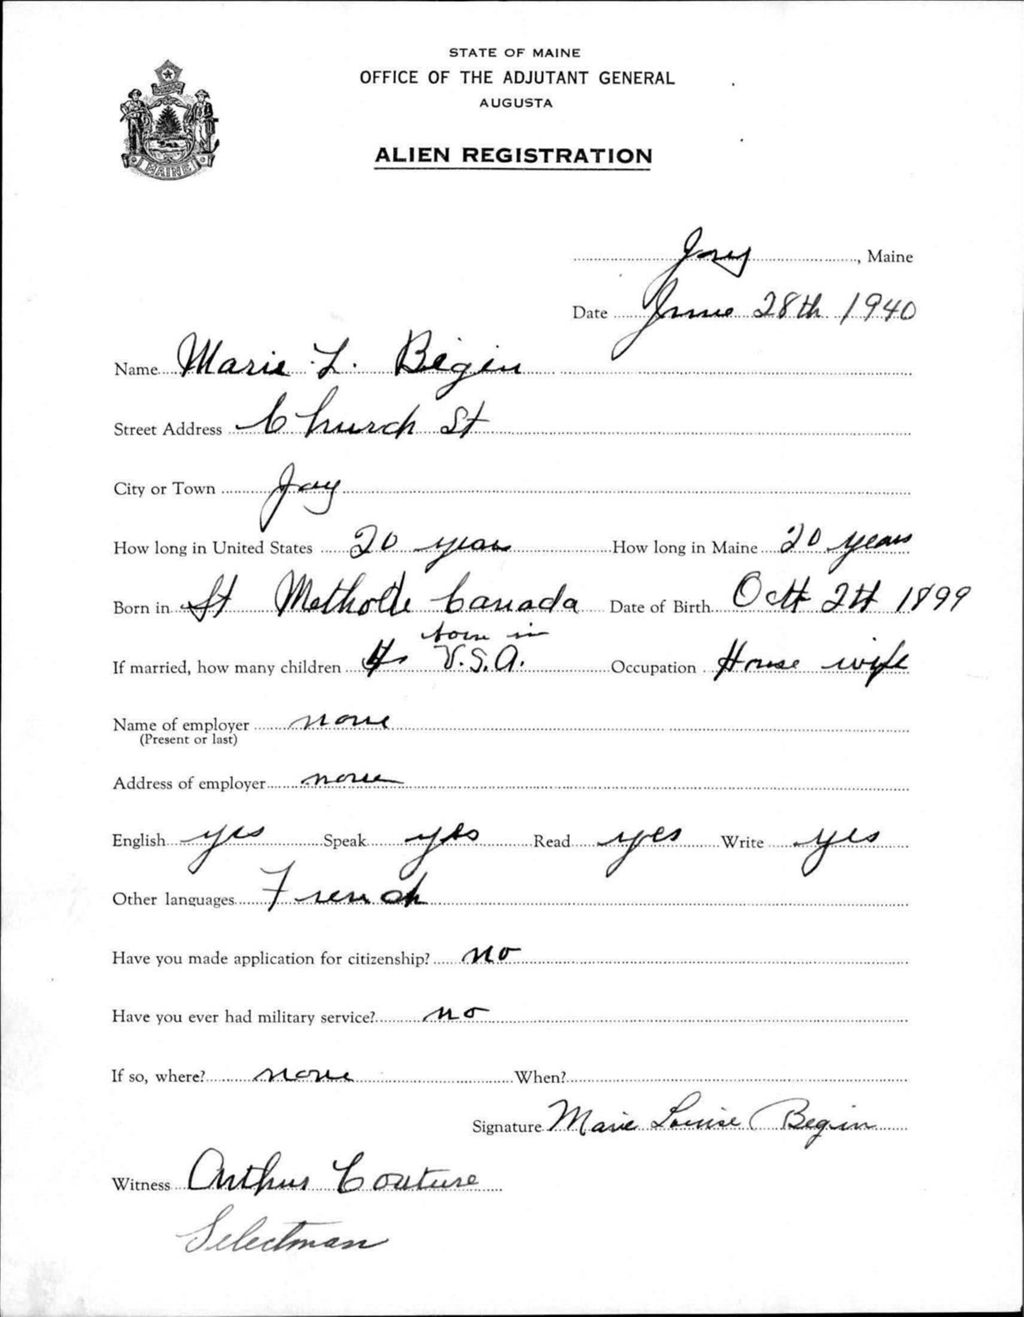 STATE OF MAINE
OFFICE OF THE ADJUTANT GENERAL
AUGUSTA
ALIEN REGISTRATION
MAINE
Jay, Maine
Date June 28th 1940
Name Marie L. Begin
Street Address Church St
City or Town Jay
How long in United States 20 years How long in Maine 20 years
Born in St Methode Canada Date of Birth Oct 2d 1899
born in
If married, how many children 4 U.S.A. Occupation House wife
Name of employer none
(Present or last)
Address of employer none
English yes Speak yes Read yes Write yes
Other languages French
Have you made application for citizenship? no
Have you ever had military service? no
If so, where? none When?
Signature Marie Louise Begin
Witness Arthur Couture
Selectman